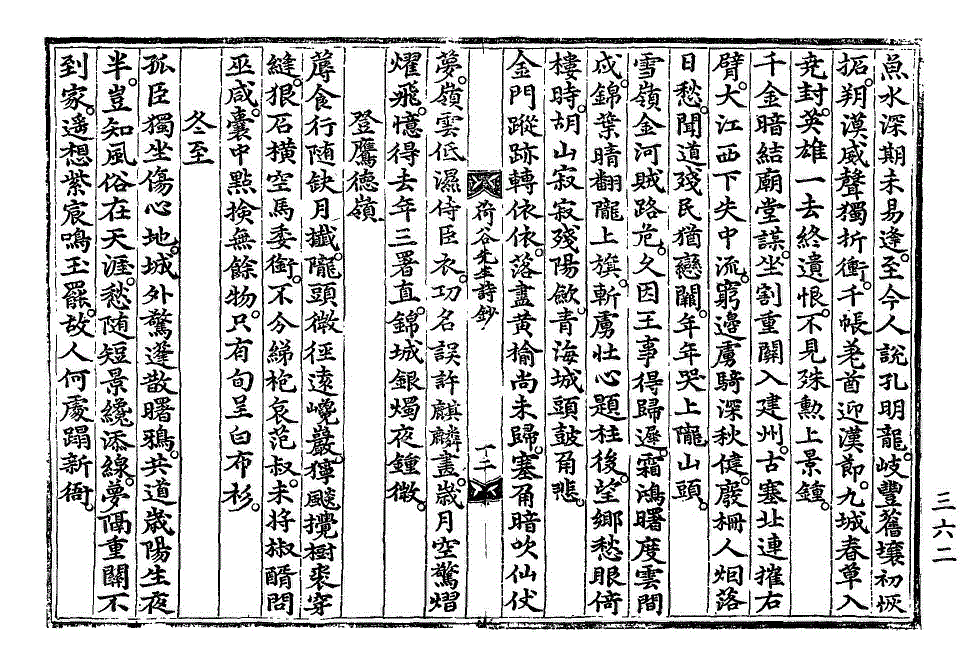 魚水深期未易逢。至今人說孔明龍。岐豐舊壤初恢
拓。朔漠威聲獨折衝。千帳羌酋迎漢節。九城春草入
堯封。英雄一去終遺恨。不見殊勳上景鍾。
千金暗結廟堂謀。坐割重關入建州。古塞北連摧右
臂。大江西下失中流。窮邊虜騎深秋健。廢柵人烟落
日愁。聞道殘民猶戀闕。年年哭上隴山頭。
雪嶺金河賊路危。久因王事得歸遲。霜鴻曙度雲間
戍。錦葉晴翻隴上旗。斬虜壯心題柱後。望鄉愁眼倚
樓時。胡山寂寂殘陽斂。青海城頭鼓角悲。
金門蹤跡轉依依。落盡黃榆尚未歸。塞角暗吹仙仗
荷谷先生詩鈔
十二
夢。嶺雲低濕侍臣衣。功名誤許麒麟畫。歲月空驚熠
燿飛。憶得去年三署直。錦城銀燭夜鍾微。
登鷹德嶺
蓐食行隨缺月攙。隴頭微徑遠巉巖。獰飈攪樹裘穿
縫。狠石橫空馬委銜。不分綈袍哀范叔。未將椒醑問
巫咸。囊中點撿無餘物。只有句呈白布衫。
冬至
孤臣獨坐傷心地。城外驚蓬散曙鴉。共道歲陽生夜
半。豈知風俗在天涯。愁隨短景纔添線。夢隔重關不
到家。遙想紫宸鳴玉罷。故人何處蹋新衙。
三六二